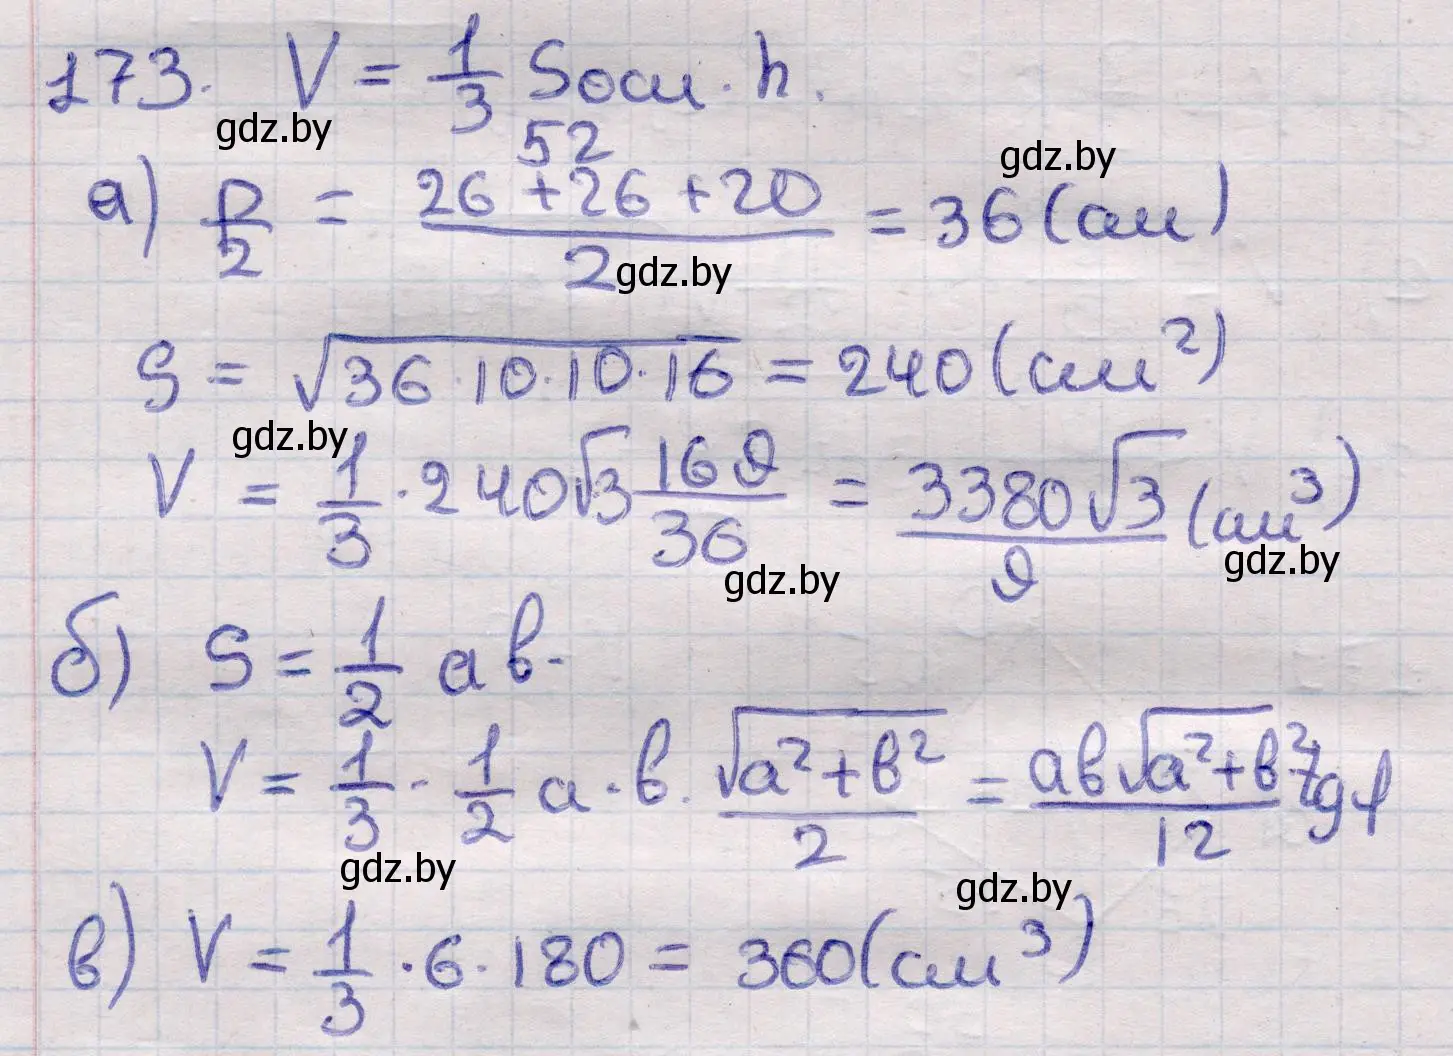 173. V = 1/3 Sосн · h.
gdz.by
52
gdz.by
а) P/2 = (26 + 26 + 20)/2 = 36 (см)
gdz.by
S = √(36·10·10·16) = 240 (см²)
gdz.by
V = 1/3 · 240√3 169/36 = 3380√3/9 (см³)
gdz.by
gdz.by
б) S = 1/2 ab.
V = 1/3 · 1/2 a·b. √(a²+b²)/2 = ab√(a²+b²)/12 tgφ
gdz.by
gdz.by
в) V = 1/3 · 6 · 180 = 360 (см³)